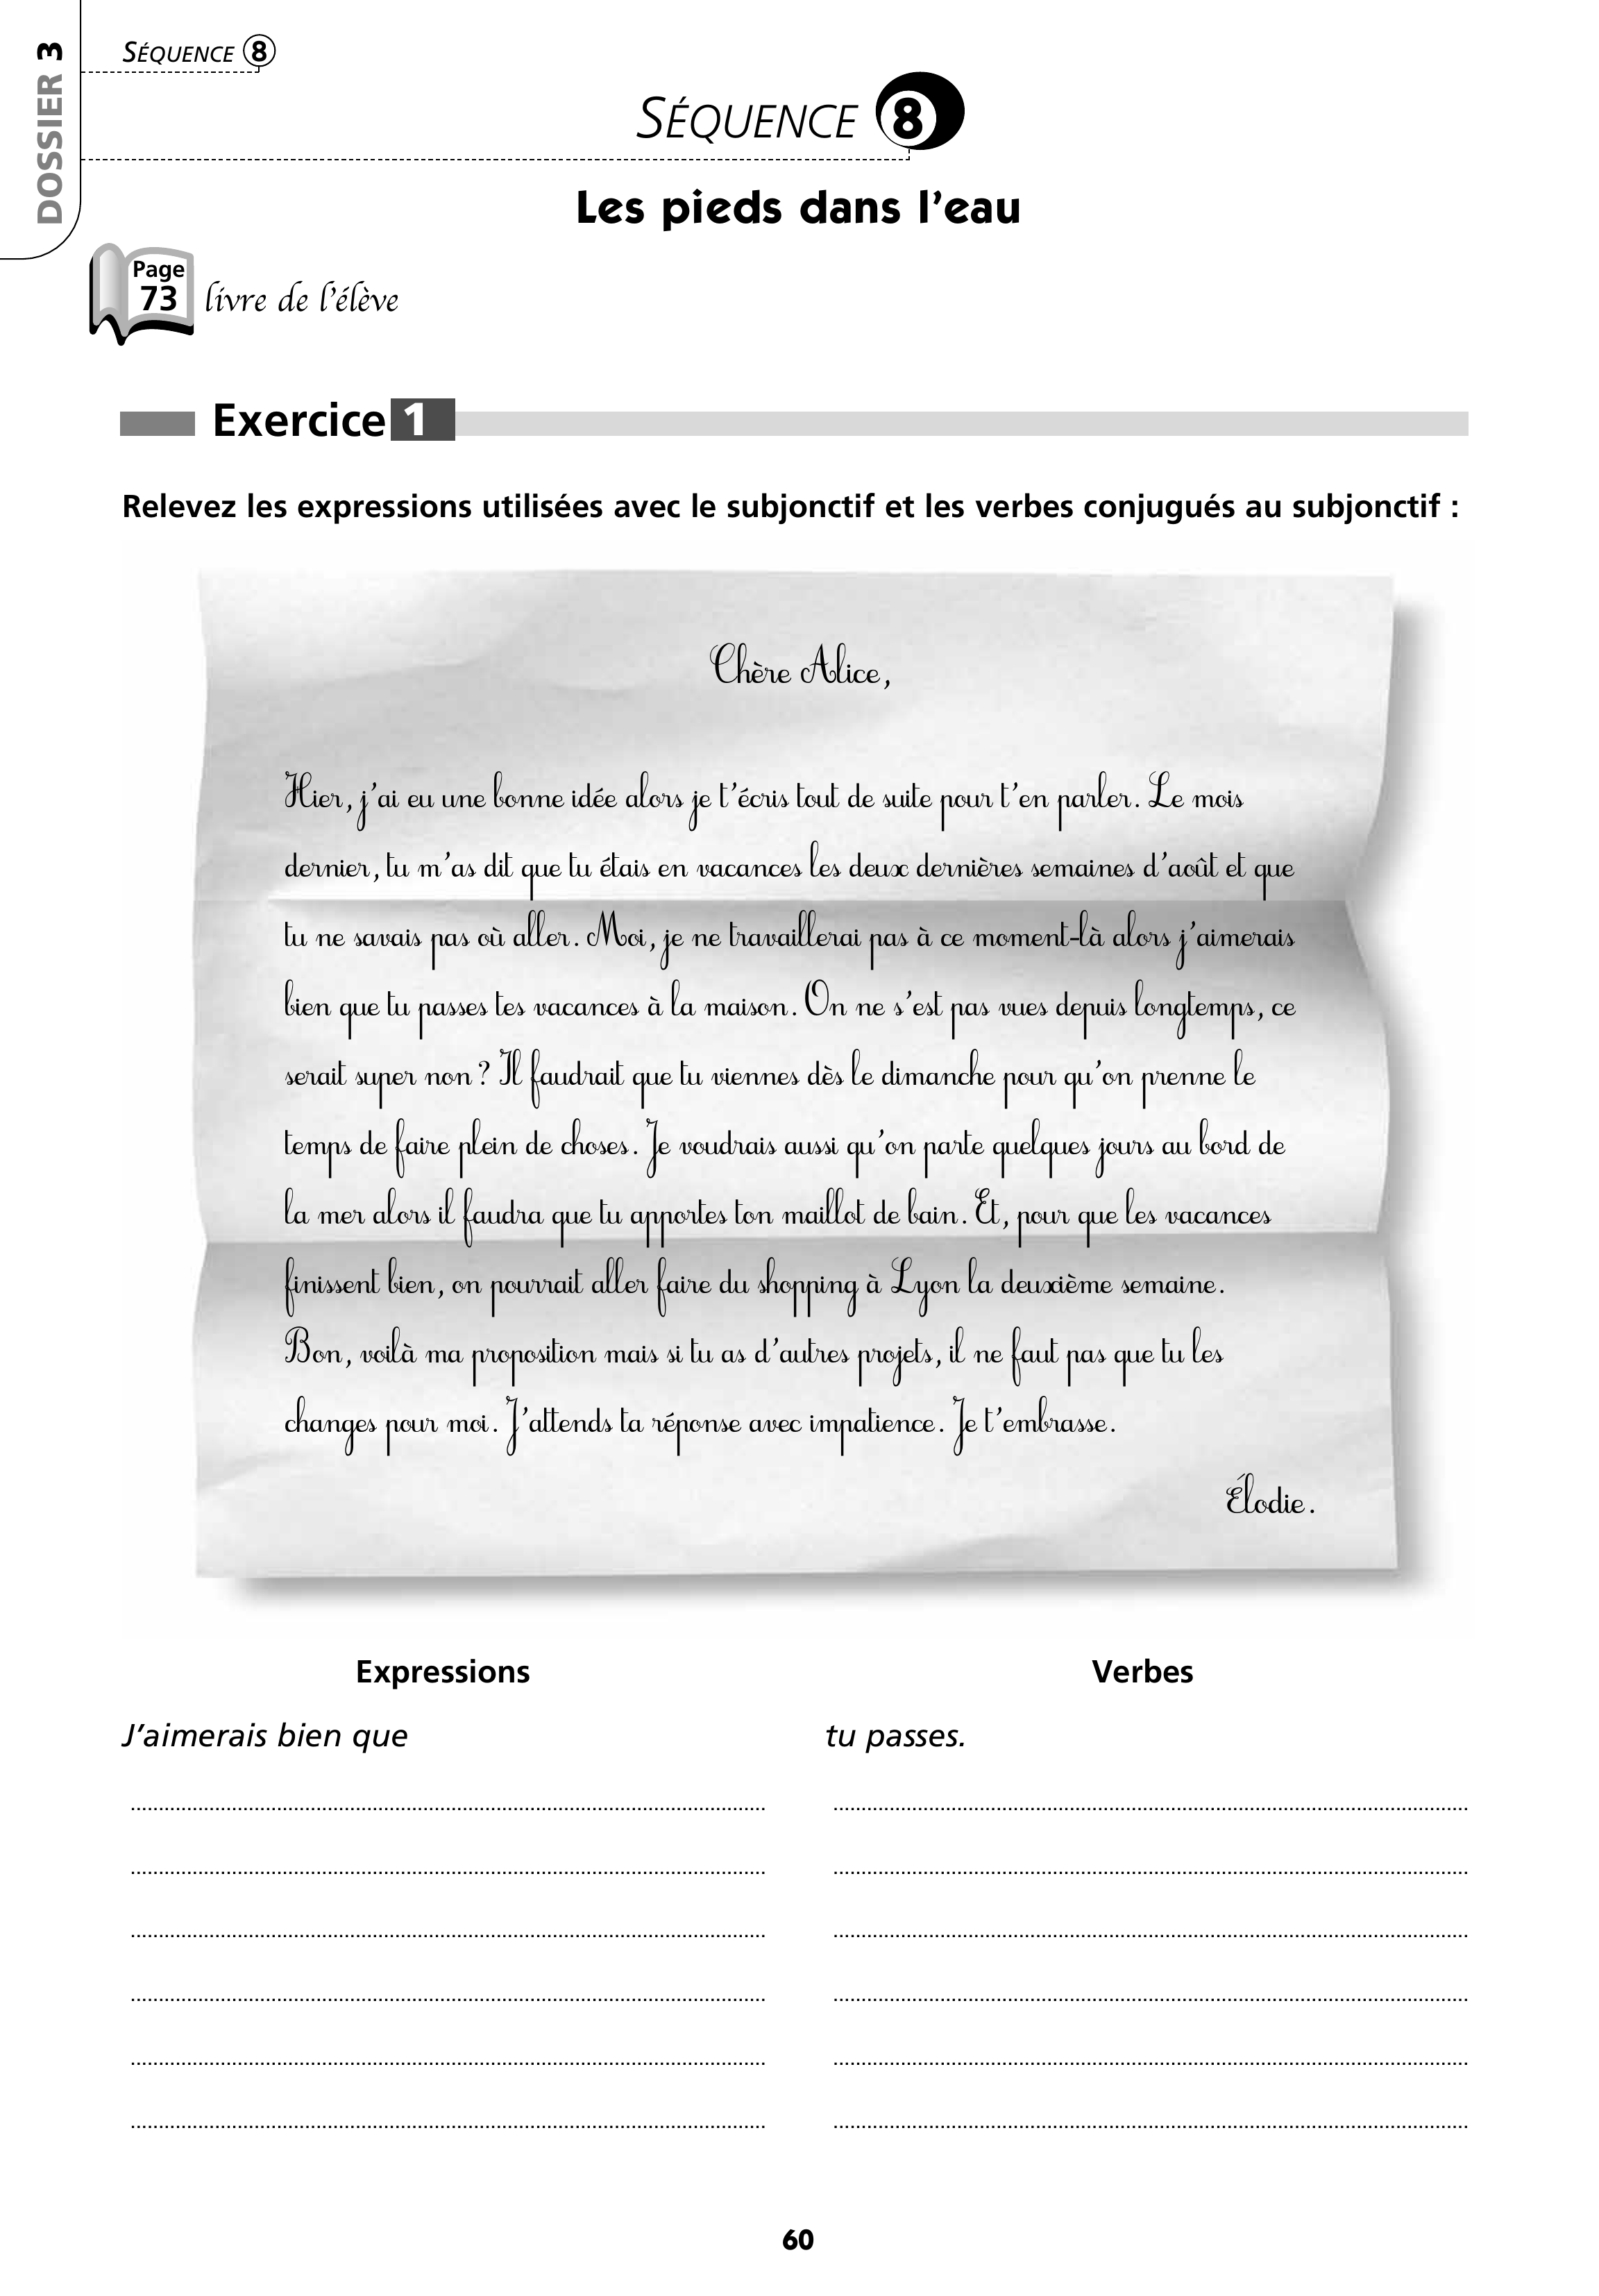 DOSSIER 3
SÉQUENCE 8
SÉQUENCE 8
Les pieds dans l'eau
Page
73
livre de l'élève
Exercice 1
Relevez les expressions utilisées avec le subjonctif et les verbes conjugués au subjonctif :
Chère Alice,
Hier, j'ai eu une bonne idée alors je t'écris tout de suite pour t'en parler. Le mois
dernier, tu m'as dit que tu étais en vacances les deux dernières semaines d'août et que
tu ne savais pas où aller. Moi, je ne travaillerai pas à ce moment-là alors j'aimerais
bien que tu passes tes vacances à la maison. On ne s'est pas vues depuis longtemps, ce
serait super non ? Il faudrait que tu viennes dès le dimanche pour qu'on prenne le
temps de faire plein de choses. Je voudrais aussi qu'on parte quelques jours au bord de
la mer alors il faudra que tu apportes ton maillot de bain. Et, pour que les vacances
finissent bien, on pourrait aller faire du shopping à Lyon la deuxième semaine.
Bon, voilà ma proposition mais si tu as d'autres projets, il ne faut pas que tu les
changes pour moi. J'attends ta réponse avec impatience. Je t'embrasse.
Élodie.
Expressions
Verbes
J'aimerais bien que
tu passes.
60